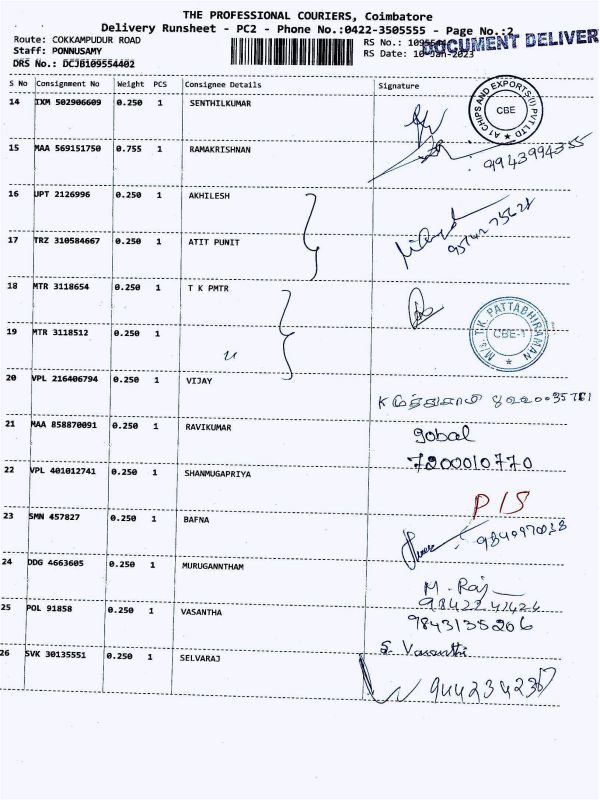 THE PROFESSIONAL COURIERS, Coimbatore
Delivery Runsheet - PC2 - Phone No.:0422-3505555 - Page No.:2
Route: COKKAMPUDUR ROAD RS No.: DOCUMENT DELIVER
Staff: PONNUSAMY RS Date: 10-Jan-2023
DRS No.: DCJB109554402
S No Consignment No Weight PCS Consignee Details Signature
14 IXM 502906609 0.250 1 SENTHILKUMAR
A1 CHIPS AND EXPORTS (I) PVT LTD ★ CBE
15 MAA 569151750 0.755 1 RAMAKRISHNAN
16 UPT 2126996 0.250 1 AKHILESH
17 TRZ 310584667 0.250 1 ATIT PUNIT
18 MTR 3118654 0.250 1 T K PMTR
M/s. T.K. PATTABHIRAMAN ★ CBE-1
19 MTR 3118512 0.250 1 "
20 VPL 216406794 0.250 1 VIJAY
21 MAA 858870091 0.250 1 RAVIKUMAR gobal
7200010770
22 VPL 401012741 0.250 1 SHANMUGAPRIYA
P IS
23 SMN 457827 0.250 1 BAFNA
24 DDG 4663605 0.250 1 MURUGANNTHAM
M. Raj
25 POL 91858 0.250 1 VASANTHA 9843135206
S. Vasanthi
26 SVK 30135551 0.250 1 SELVARAJ